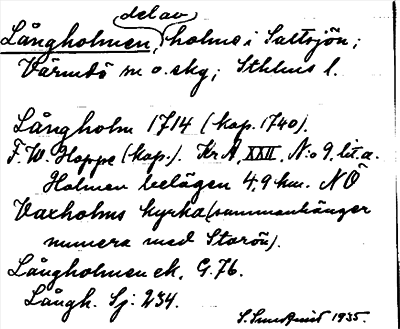 del av
Långholmen, holme i Saltsjön;
Värmdö sn o. skg; Sthlms l.
Långholm 1714 (kop. 1740).
F. W. Hoppe (kop.). Kr A, XXII, N:o 9, lit. a.
Holmen belägen 4,9 km. NÖ
Vaxholms kyrka (sammanhänger
numera med Storön).
Långholmen ek. G. 76.
Långh. Sj: 234.
1935.